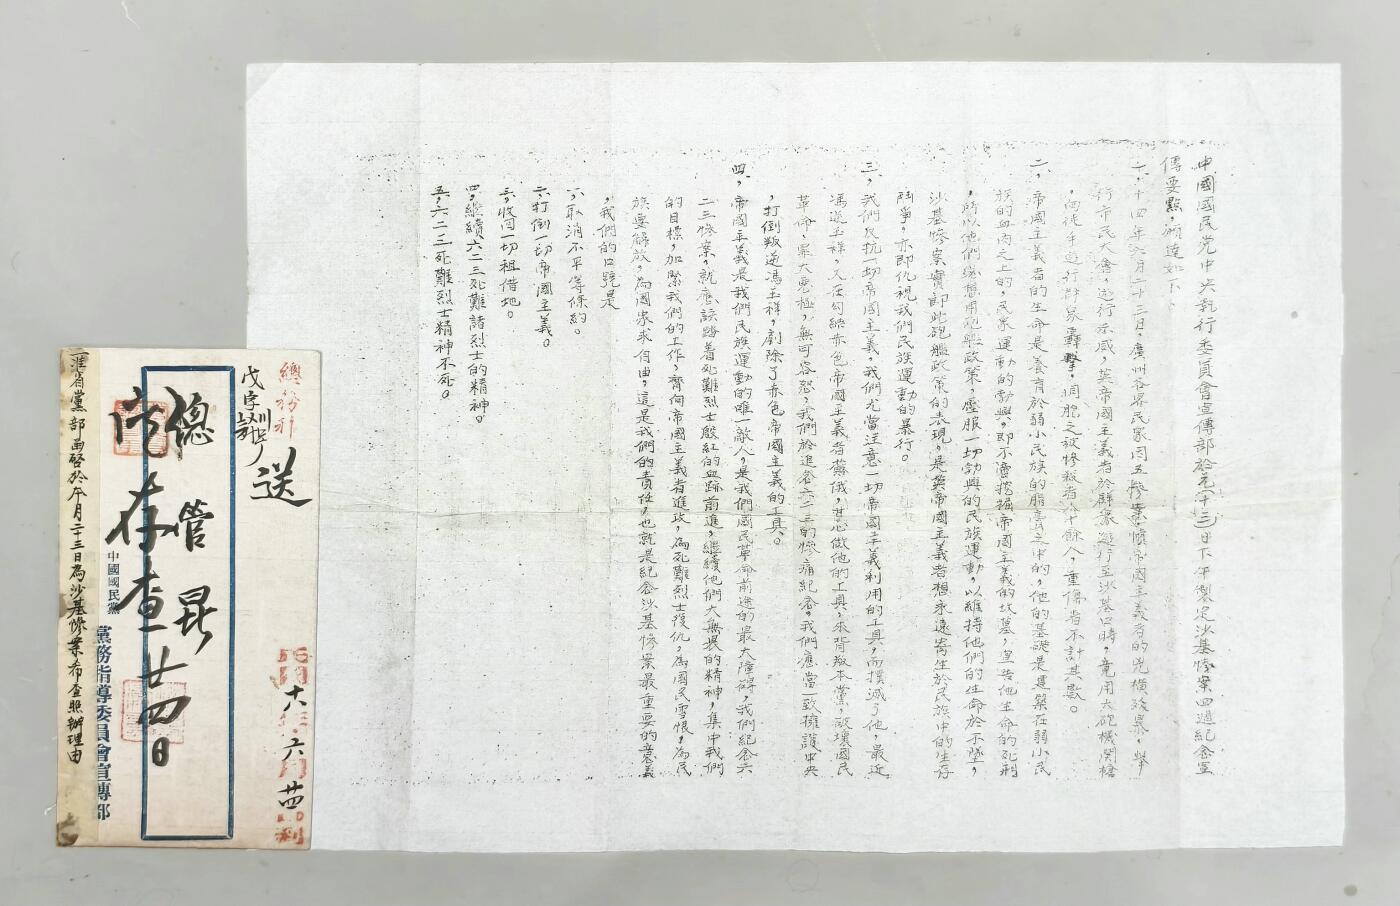 中國國民党中央执行委員會宣傳部於元(十三)日下午製定沙基慘案四週紀念宣
傳要點,頒達如下、
一、十四年六月二十三日,廣州各界民眾因五慘案憤帝國主義者的兇橫殘暴,舉
行市民大會,遊行示威,英帝國主義者於群眾遊行至沙基口時,竟用大砲機関槍
,向徒手遊行群眾轟擊,同胞之被慘殺者八十餘人,重傷者不計其數。
二、帝國主義者的生命是養育於弱小民族的脂膏之中的,他的基礎是建築在弱小民
族的血肉之上的,民眾運動的勃興,即不啻挖掘帝國主義的坟墓,宣告他生命的死刑
,所以他們總想用砲艦政策,壓服一切勃興的民族運動,以維持他們的生命於不墜,
沙基慘案實即此砲艦政策的表現,是英帝國主義者想永遠寄生於民族中的生存
鬥爭,亦即仇視我們民族運動的暴行。
三,我們反抗一切帝國主義,我們尤當注意一切帝國主義利用的工具,而撲滅了他,最近
馮逆玉祥,又在勾結赤色帝國主義者蘇俄,甘心做他的工具,來背叛本黨,破壞國民
革命,罪大惡極,無可容恕,我們於追念六二三的慘痛紀念,我們應當一致擁護中央
,打倒叛逆馮玉祥,剷除了赤色帝國主義的工具。
四,帝國主義是我們民族運動的唯一敵人,是我們國民革命前途的最大障碍,我們紀念六
二三慘案,就應該踏着死難烈士殷紅的血跡前進,繼續他們大無畏的精神,集中我們
的目標,加緊我們的工作,齊向帝國主義者進攻,為死難烈士復仇,為國民雪恨,為民
族要解放,為國家求自由,這是我們的責任,也就是紀念沙基慘案最重要的意義
,我們的口號是
一,取消不平等條約。
二,打倒一切帝國主義。
三,收回一切租借地。
四,繼續六二三死難諸烈士的精神。
五,六二三死難烈士精神不死。
總務科
戊字
送
十八年六月廿四
總管晁
存查廿四日
中國國民黨
黨務指導委員會宣傳部
一准省黨部函啓於本月二十三日為沙基慘案希查照辦理由